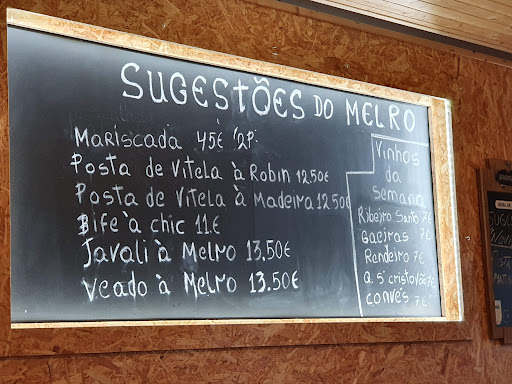 SUGESTÕES DO MELRO
Mariscada 45€ 2P.
Posta de Vitela à Robin 12.50€
Posta de Vitela à Madeira 12.50€
Bife à chic 11.€
Javali à Melro 13.50€
Veado à Melro 13.50€
Vinhos
da
semana
Ribeiro Santo 7€
Gaeiras 7€
Rendeiro 7€
Q. S. cristovão 7€
convés 7€